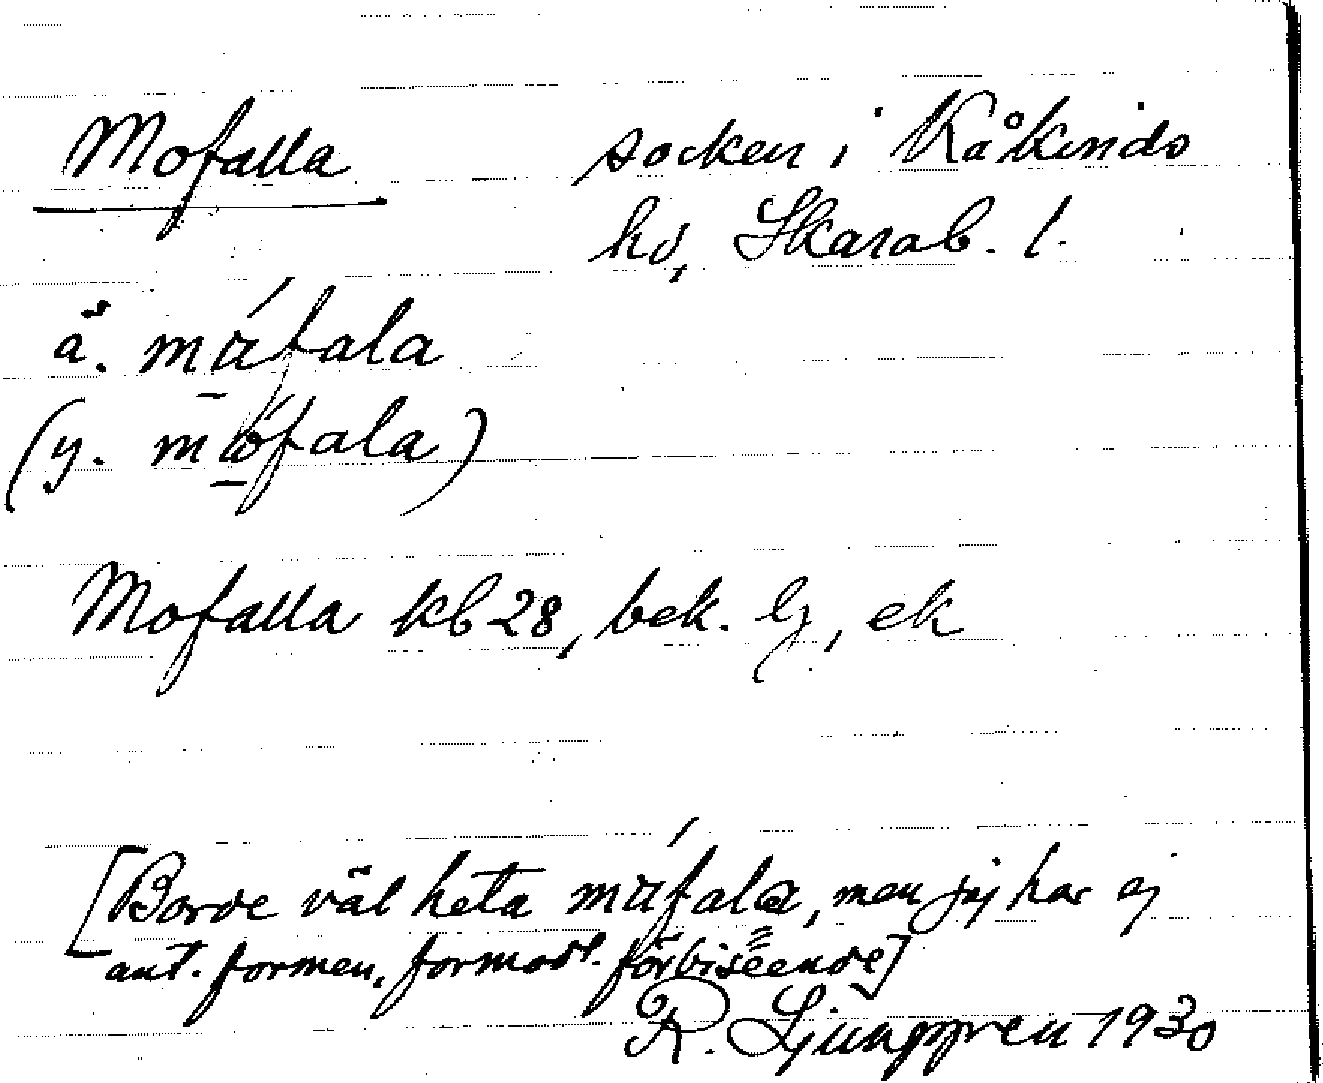 Mofalla socken i Kåkinds
hd, Skarab. l.
ä. máfala
(y. mófala)
Mofalla kb 28, bek. lj, ek
[Borde väl heta máfala, men jag har ej
ant. formen, formodl. förbiseende]
R. Ljunggren 1930